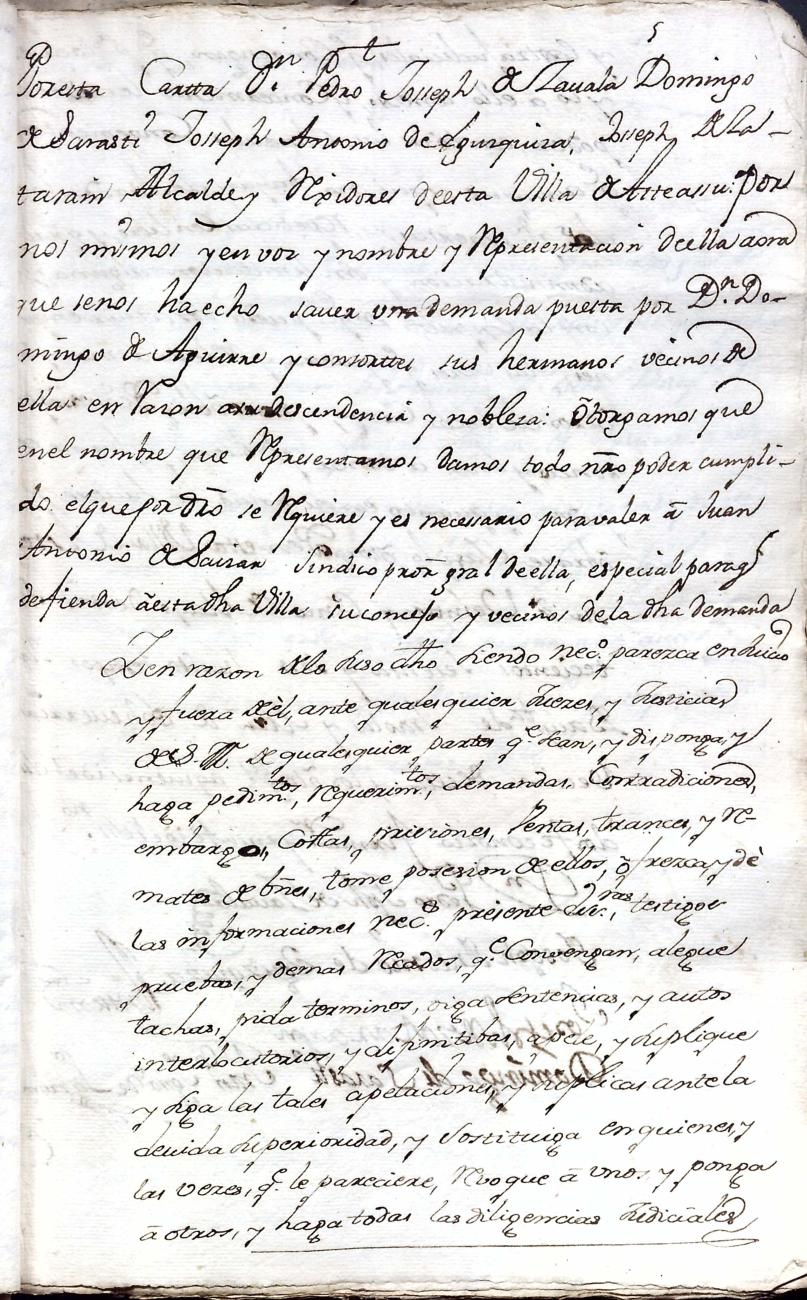 5
Poresta Cartta Dn. Pedro Joseph de Zavala Domingo
de Sarasti Joseph Antonio de Eguzquiza, Joseph de La-
tarain Alcalde y Rexidores deesta Villa de Asteassu: por
nos mismos y en voz y nombre y Representacion deella aora
que senos ha echo saver una demanda puesta por Dn. Do-
mingo de Aguirre y consorttes sus hermanos vecinos de
ella en razon a su descendencia y nobleza: otorgamos que
enel nombre que Representamos damos todo nro poder cumpli-
do el que por dro se Requiere y es necessario para valer à Juan
Antonio de Saizar Sindico pror. gral deella, especial paraq̃
defienda à esta dha Villa su concejo y vecinos dela dha demanda
Y en razon delo suso dho siendo neco. parezca en Juicio
y fuera de èl, ante qualesquier Juezes, y Justicias
de S. M. de qualesquier partes qe. sean, y disponga, y
haga pedimtos, Requerimtos, demandas, Contradiciones,
embargos, Costtas, prisiones, Ventas, trances, y Re-
mates de bñes, tome posesion de ellos, ofrezca, y dè
las informaciones necs. presente escrras, testigos
pruebas, y demas Recados, qe. Convengan, alegue
tachas, pida terminos, oiga sentencias, y autos
interlocutorios, y difinitibas, apele, y suplique
y siga las tales apelaciones, y suplicas ante la
devida superioridad, y sostituiga en quienes, y
las vezes, qe. le pareciere, Revoque à unos y ponga
à otros, y haga todas las diligencias Judiciales